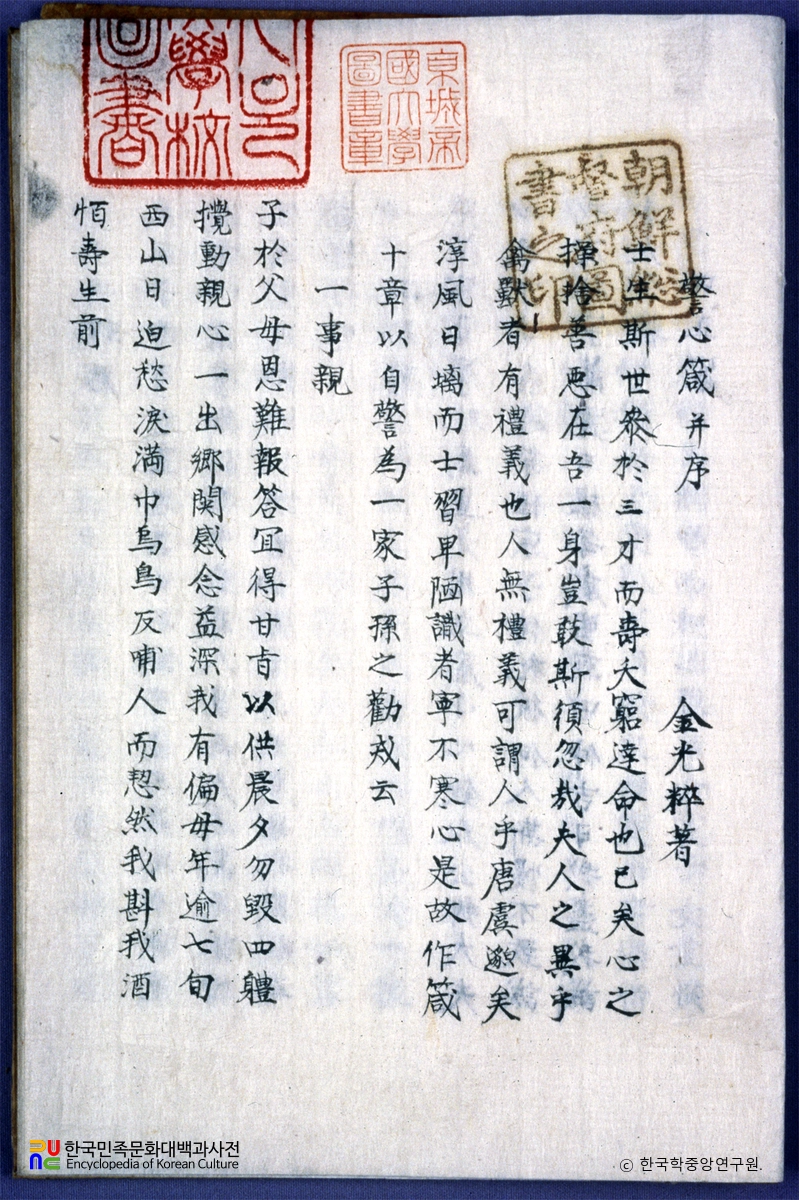 警心箴 并序
金光粹著
士生斯世參於三才而壽夭窮達命也已矣心之
操捨善惡在吾一身豈敢斯須忽哉夫人之異乎
禽獸者有禮義也人無禮義可謂人乎唐虞邈矣
淳風日漓而士習卑陋識者寧不寒心是故作箴
十章以自警為一家子孫之勸戒云
一事親
子於父母恩難報答冝得甘旨以供晨夕勿毀四軆
攪動親心一出鄉関感念益深我有偏母年逾七旬
西山日迫愁淚滿巾烏鳥反哺人而恝然我斟我酒
怕壽生前
朝鮮総
督府圖
書之印
京城帝
國大學
圖書章
學校
圖書
한국민족문화대백과사전
Encyclopedia of Korean Culture
© 한국학중앙연구원.